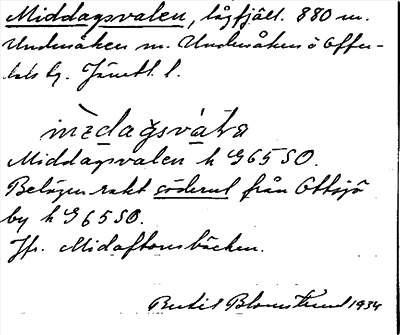 Middagsvalen, lågfjäll. 880 m.
Undersåkers sn. Undersåkers o Offer-
dals tg. Jämtl. l.
Middagsvalen k G65SO.
Belägen rakt söderut från Ottsjö
by k G65SO.
Jfr. Midaftonsbäcken.
Bertil Blomstrand 1934